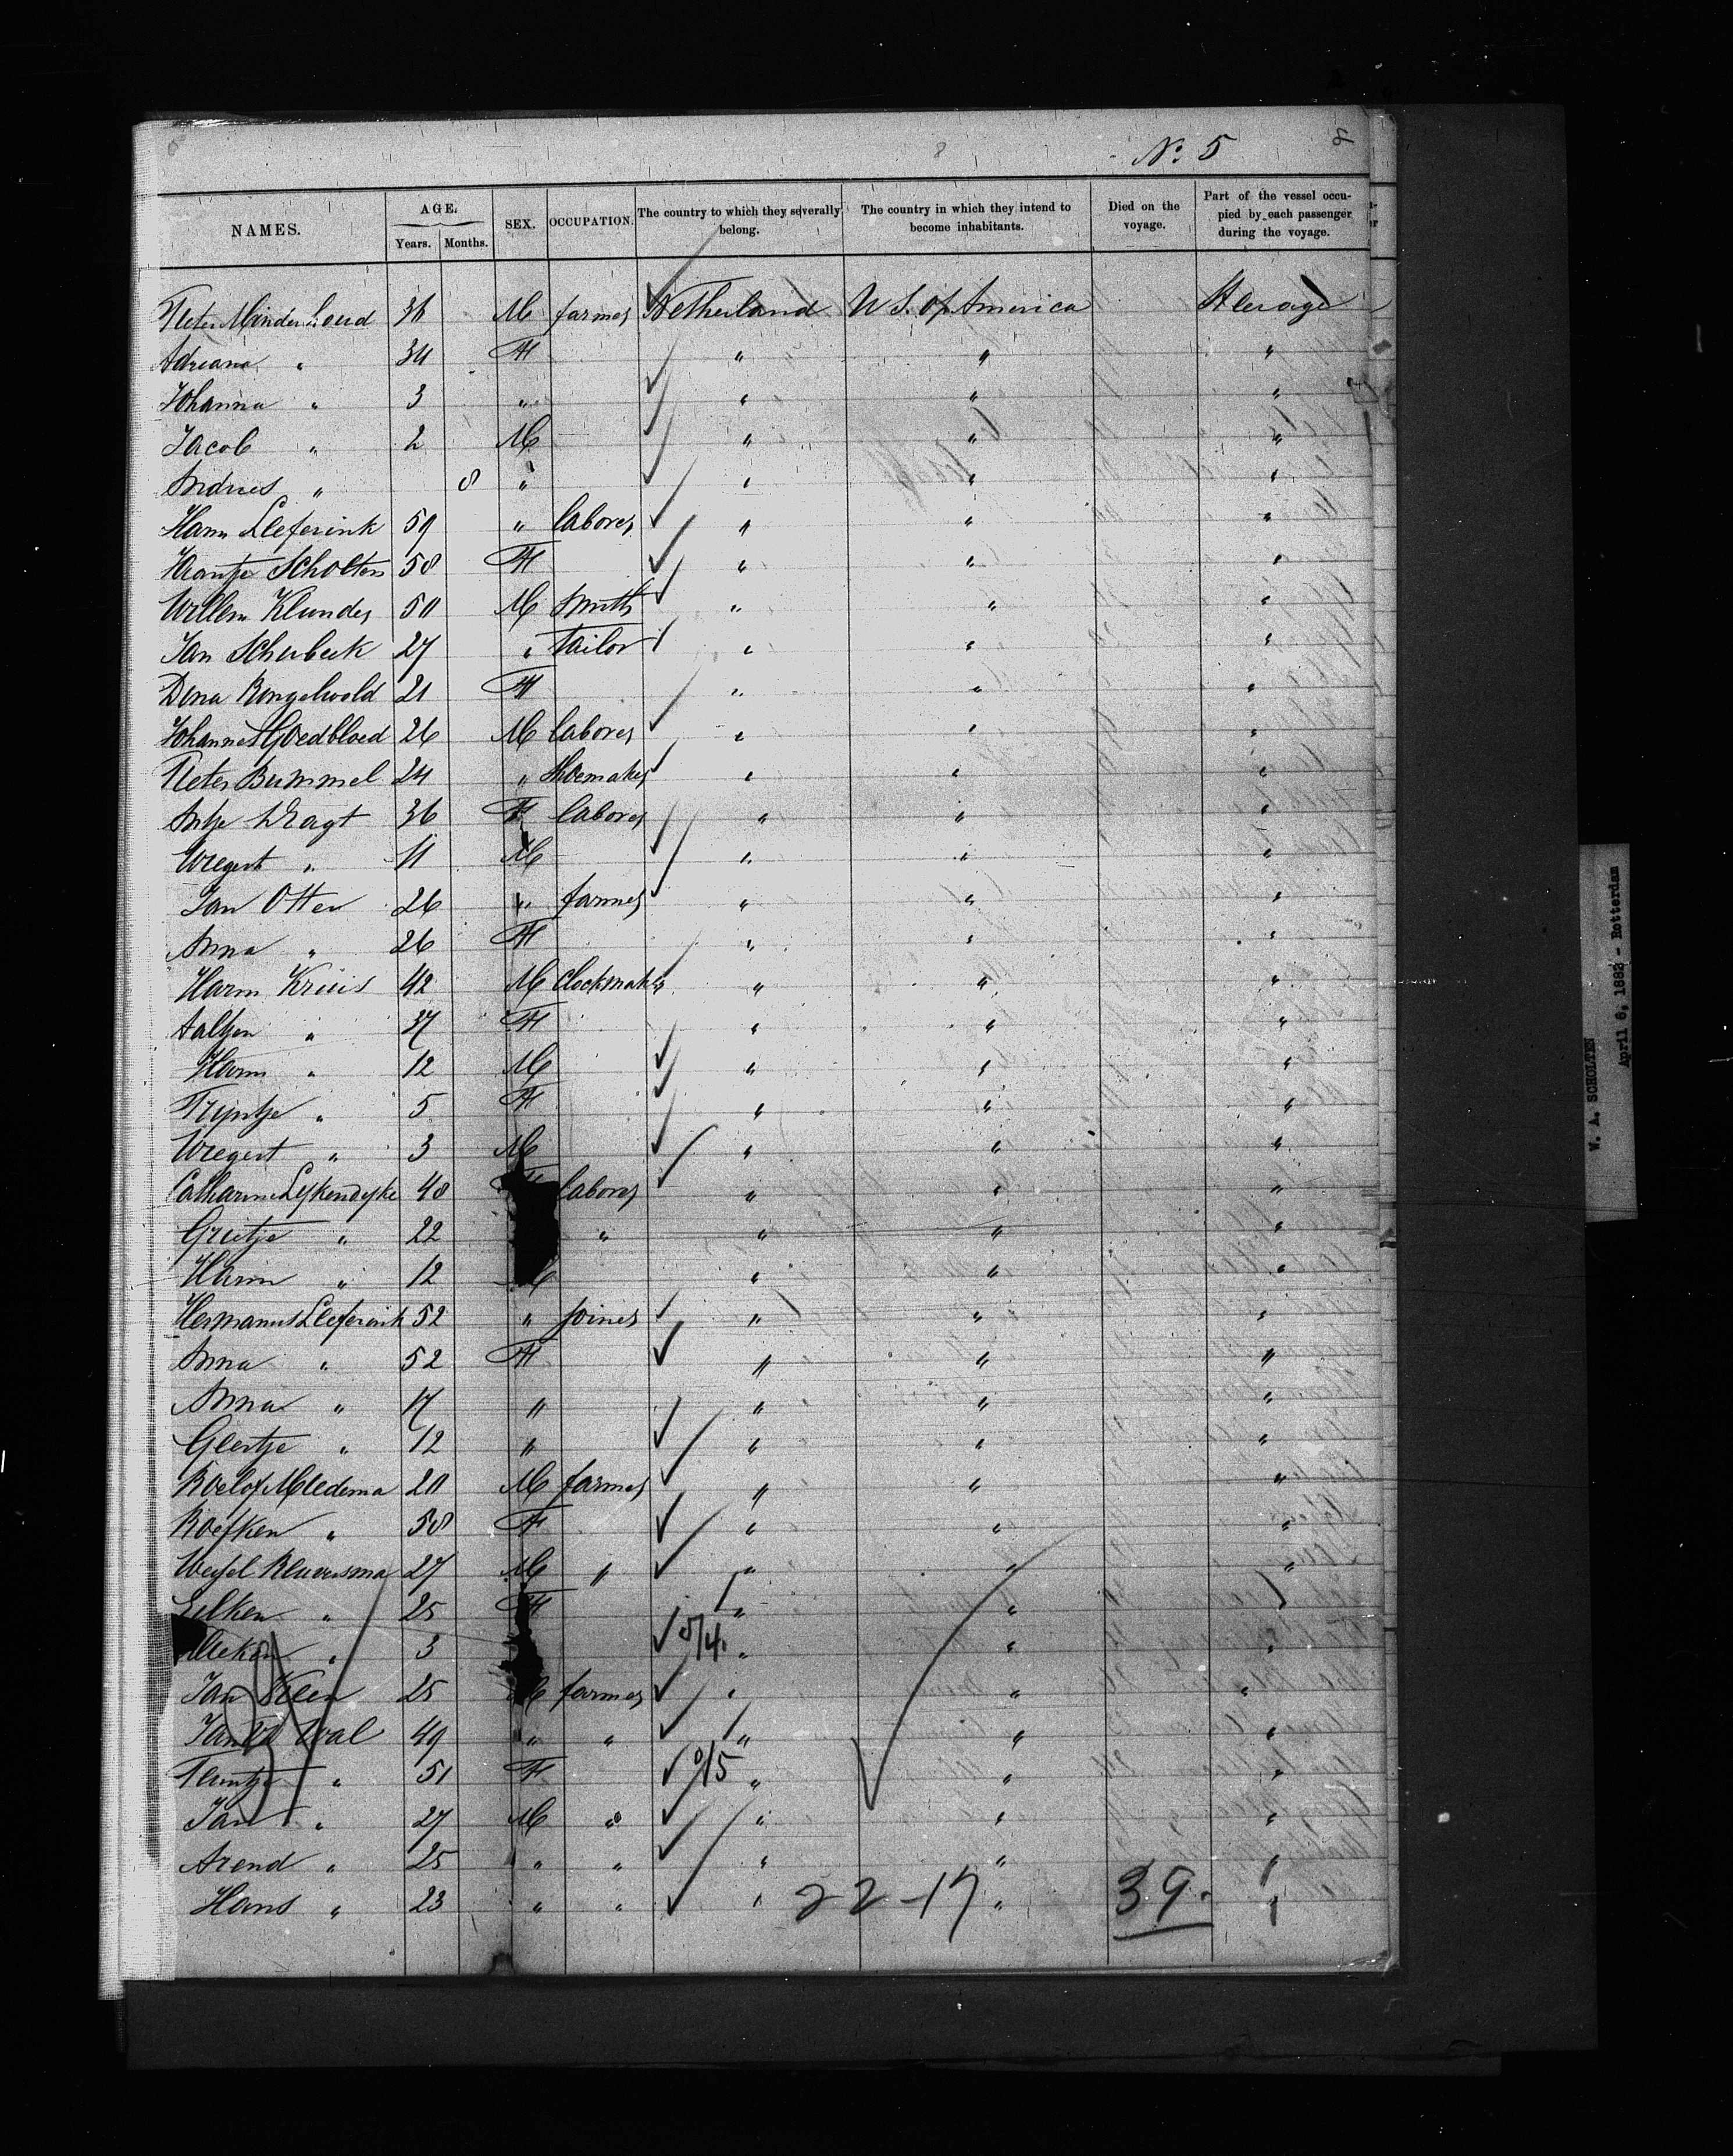 No. 5 8
NAMES. AGE. Years. Months. SEX. OCCUPATION. The country to which they severally belong. The country in which they intend to become inhabitants. Died on the voyage. Part of the vessel occupied by each passenger during the voyage.
Pieter Minderhoud 36 M farmer Netherland U S. of America Sterage
Adriana " 34 F " " "
Johanna " 3 " " " "
Jacob " 2 M " " "
Andries " 8 " " " "
Harm Lleferink 59 " laborer " " "
Hantje Scholten 58 F " " "
Willem Klunder 50 M Smith " " "
Jan Schubeek 27 " Tailor " " "
Dena Rengelwold 21 F " " "
Johannes Goedbloed 26 M laborer " " "
Pieter Bummel 24 " Shoemaker " " "
Antje Dragt 36 F laborer " " "
Wregert " 11 M " " "
Jan Otten 26 " farmer " " "
Anna " 26 F " " "
Harm Kruis 42 M Clockmaker " " "
Aaltjen " 37 F " " "
Harm " 12 M " " "
Tryntje " 5 F " " "
Wregert " 3 M " " "
Catharina Lykendyke 48 F laborer " " "
Grietje " 22 " " " "
Harm " 12 M " " "
Hermanus Lleferink 52 " joiner " " "
Anna " 52 F " " "
Anna " 17 " " " "
Geertje " 12 " " " "
Roelof Miedema 20 M farmer " " "
Roefken " 58 F " " "
Wessel Reuversma 27 M " " " "
Eilken " 25 F " " "
" 3 5/4. " " "
Jan Steen 25 M farmer " " "
Jan Vd Wal 49 " " " " "
Teuntje " 51 F 9/5 " " "
Jan " 27 M " " " "
Arend " 25 " " " " "
Hans " 23 " " " " "
22-17 39.
W. A. SCHOLTEN
April 6, 1882 - Rotterdam